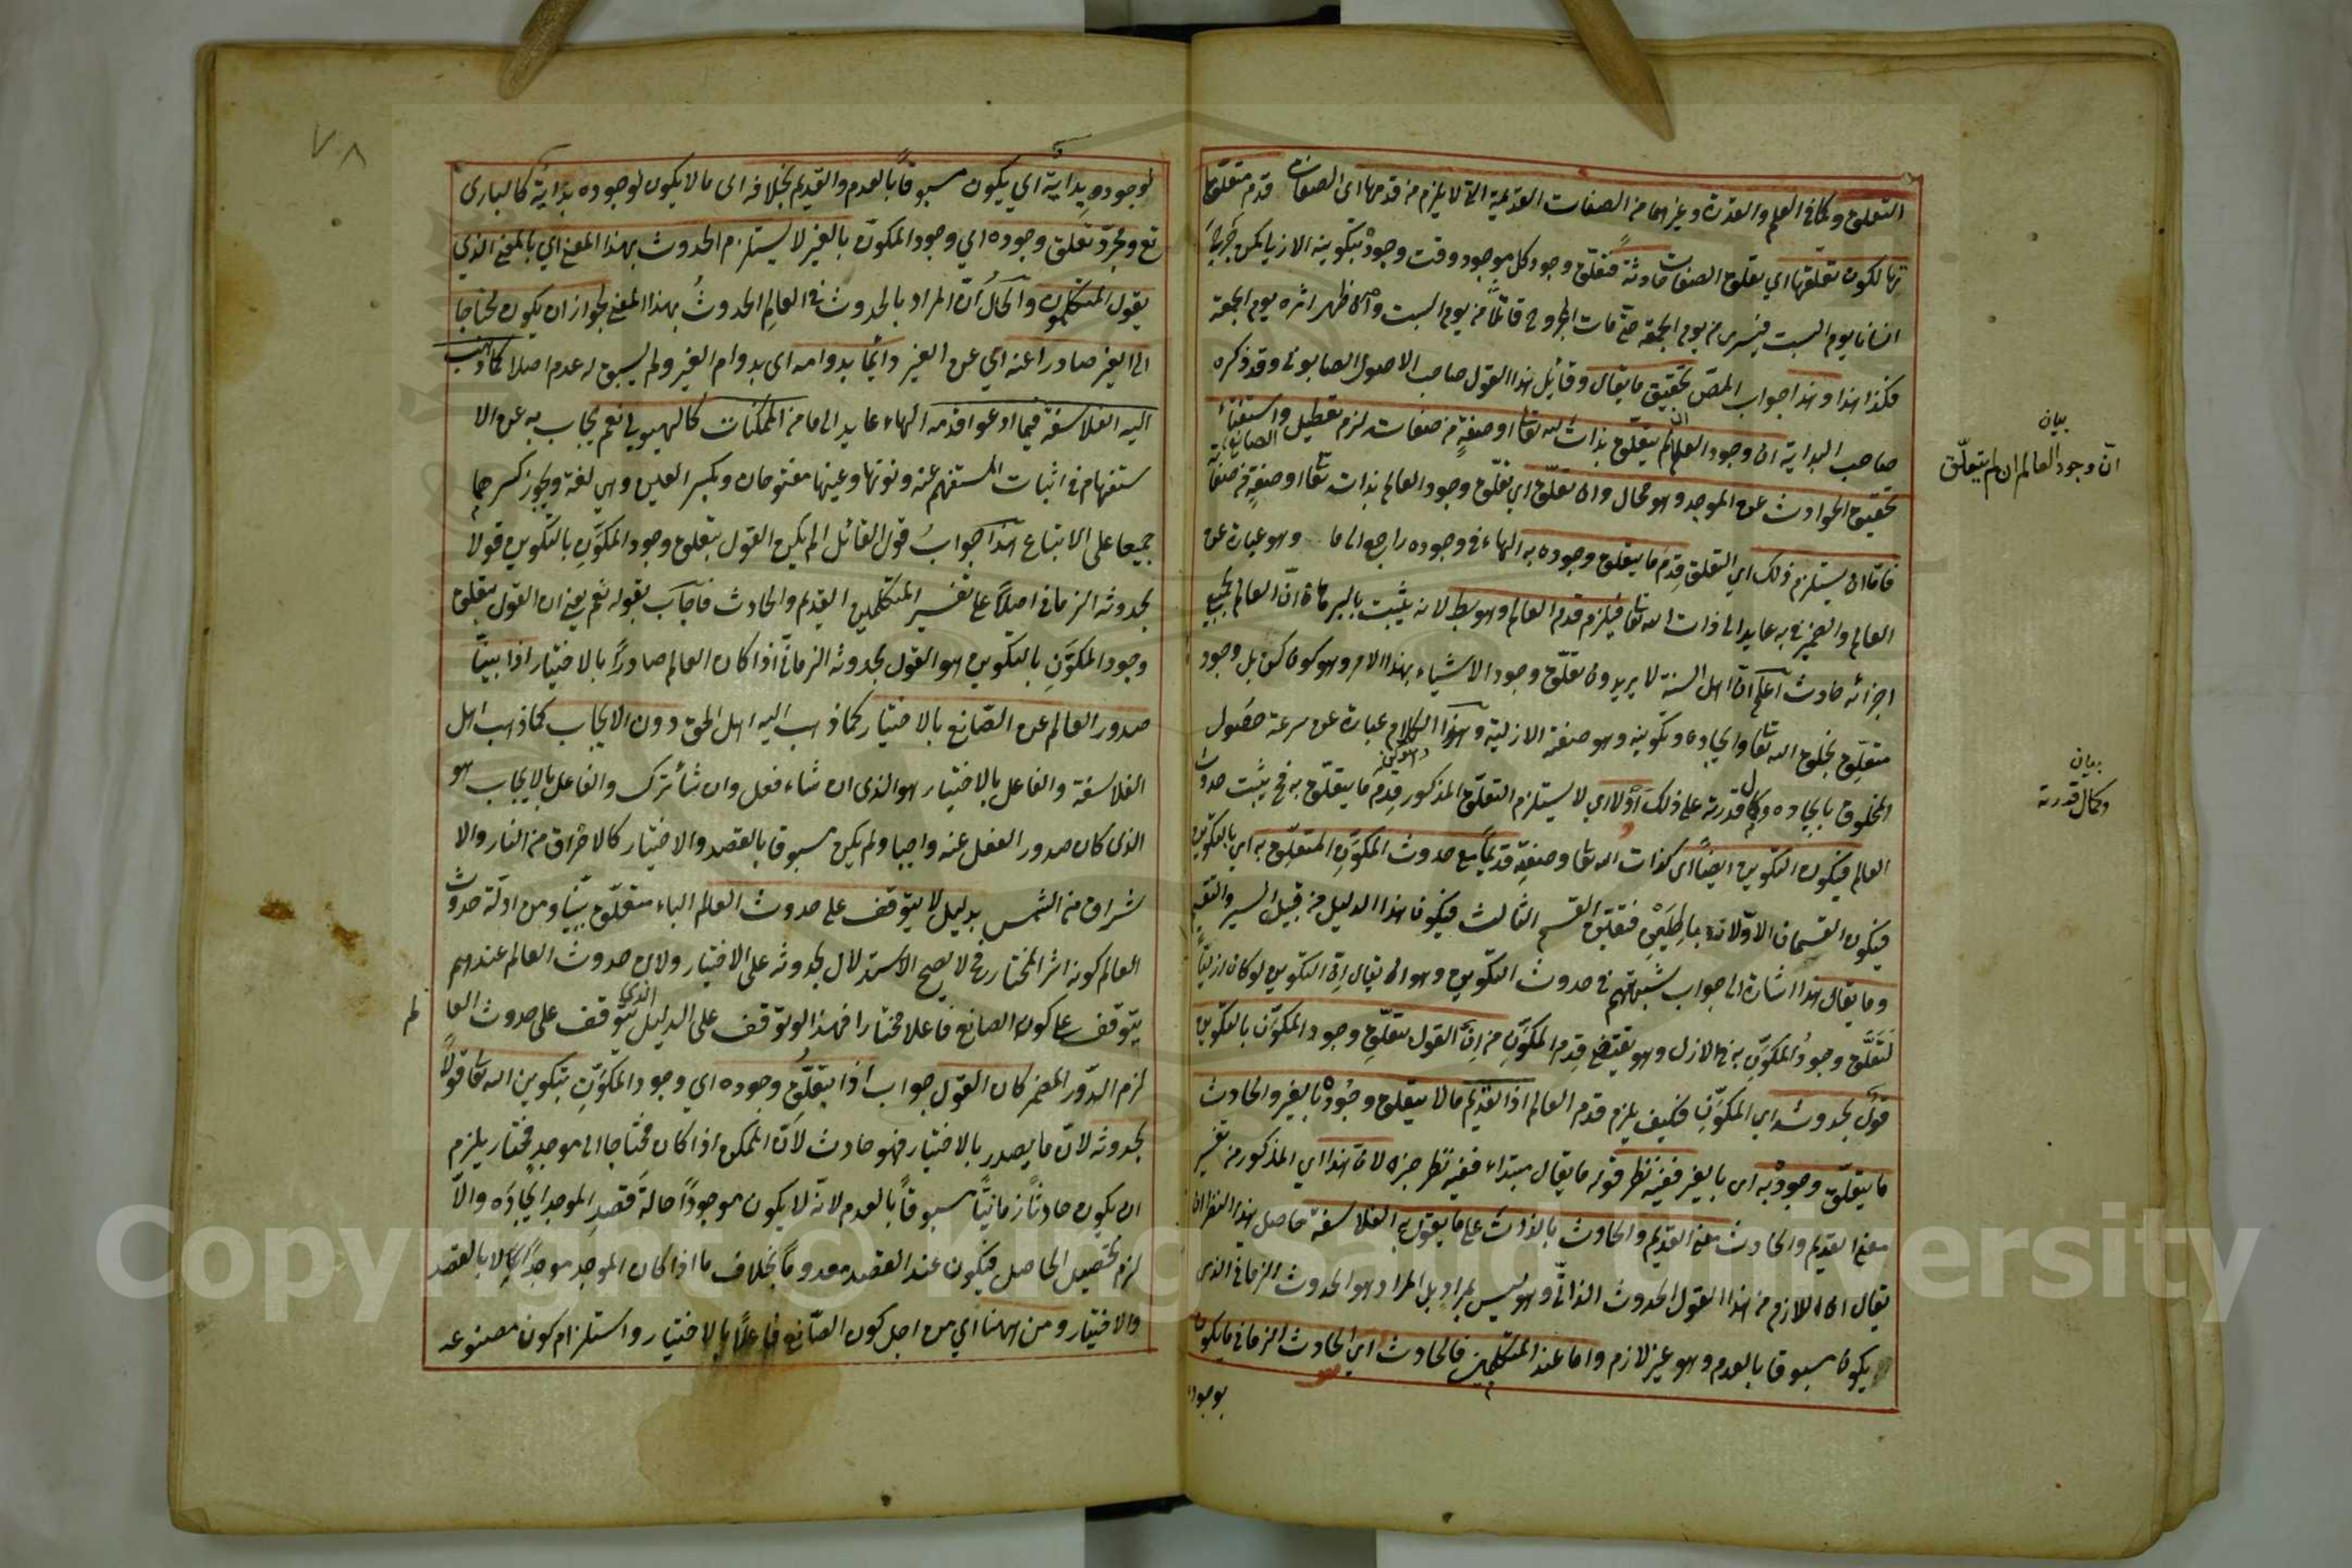 التعلق وكما في العلم والقدرة وغيرهما من الصفات القديمة التي لا يلزم من قدمها اى الصفات قدم متعلقا
تها لكون تعلقها اي تعلق الصفات حادثة فتعلق وجود كل موجود وقت وجوده بتكوينه الازلي كمن جرح
انسانا يوم السبت فيسرى من يوم الجمعة حتى مات المجروح قاتلا من يوم السبت وان ظهر اثره يوم الجمعة
فكذا هذا وهذا جواب المص تحقيق ما يقال وقائل هذا القول صاحب الاصول الصابوني وقد ذكره
صاحب البداية ان وجود العالم ان لم يتعلق بذات الله تعا او صفة من صفات لزم تعطيل الصانع واستغناء
تحقيق الحوادث عن الموجد وهو محال وان تعلق اي تعلق وجود العالم بذات تعا او صفة من صفا
فاما ان يستلزم ذلك اي التعلق قدم ما يتعلق وجوده به الهاء في وجوده راجع الى ما وهو عبارة عن
العالم والضمير في به عايد الى ذات الله تعا فيلزم قدم العالم وهو بط لانه يثبت بالبرهان ان العالم بجميع
اجزائه حادث اعلم ان اهل السنة لا يريدون تعلق وجود الاشياء بهذا الامر وهو كون كن بل وجود
متعلق بخلق الله تعا وايجاده وتكوينه وهو صفته الازلية وهذا الكلام عبارة عن سرعة حصول
المخلوق بايجاده وكمال قدرته على ذلك أو لا اي لا يستلزم التعلق المذكور قدم ما يتعلق به فح يثبت حدوث
العالم فيكون التكوين ايضا اى كذات الله تعا وصفته قديما مع حدوث المكون المتعلق به اي بالتكوين
فيكون القسمان الاولان باطلين فتعين القسم الثالث فيكون هذا الدليل من قبيل السبر والتقسيم
وما يقال هذا اشارة الى جواب شبهتهم في حدوث التكوين وهو ان يقال ان التكوين لو كان ازليا
لتعلق وجود المكون به في الازل وهو يقتضي قدم المكون من ان القول بتعلق وجود المكون بالتكوين
قول بحدوثه اي المكون فكيف يلزم قدم العالم اذ القديم ما لا يتعلق وجوده بالغير والحادث
ما يتعلق وجوده به اى بالغير ففيه نظر قوله ما يقال مبتداء ففيه نظر خبره لان هذا اي المذكور من تفسير
معنى القديم والحادث معنى القديم والحادث بالذات على ما يقول به الفلاسفة حاصل هذا النظر ان
يقال ان اللازم من هذا القول الحدوث الذاتي وهو ليس بمراد بل المراد هو الحدوث الزماني الذى
يكون مسبوقا بالعدم وهو غير لازم واما عند المتكلمين فالحادث اي الحادث الزماني ما يكون
بوجوده
بيان
ان وجود العالم ان لم يتعلق
بيان
وكمال قدرته
٧٨
لوجوده بداية اي يكون مسبوقا بالعدم والقديم بخلافه اى ما لا يكون لوجوده بداية كالبارى
تع ومجرد تعلق وجوده اي وجود المكون بالغير لا يستلزم الحدوث بهذا المعنى اي بالمعنى الذي
يقول المتكلمون والحال ان المراد بالحدوث في العالم الحدوث بهذا المعنى لجواز ان يكون محتاجا
الى الغير صادرا عنه اي عن الغير دائما بدوامه اى بدوام الغير ولم يسبق له عدم اصلا كما ذهب
اليه الفلاسفة فيما ادعوا قدمه الهاء عايد الى ما من الممكنات كالهيولي نعم يجاب به عن الا
ستفهام في اثبات المستفهم عنه ونونها وعينها مفتوحان وبكسر العين وهي لغة ويجوز كسرهما
جميعا على الاتباع هذا جواب قول القائل الم يكن القول بتعلق وجود المكون بالتكوين قولا
بحدوثه الزماني اصلا على تفسير المتكلمين القديم والحادث فاجاب بقوله نعم يعنى ان القول بتعلق
وجود المكون بالتكوين هو القول بحدوثه الزماني اذا كان العالم صادرا بالاختيار اذا بينا
صدور العالم عن الصانع بالاختيار كما ذهب اليه اهل الحق دون الايجاب كما ذهب اهل
الفلاسفة والفاعل بالاختيار هو الذى ان شاء فعل وان شأ ترك والفاعل بالايجاب هو
الذى كان صدور الفعل عنه واجبا ولم يكن مسبوقا بالقصد والاختيار كالاحراق من النار والا
شراق من الشمس بدليل لا يتوقف على حدوث العالم الباء متعلق بينا ومن ادلة حدوث
العالم كونه اثر المختار فح لا يصح الاستدلال بحدوثه على الاختيار ولان حدوث العالم عندهم
يتوقف على كون الصانع فاعلا مختارا فهذا لو توقف على الدليل الذي يتوقف على حدوث العا لم
لزم الدور المضمر كان القول جواب اذا بتعلق وجوده اي وجود المكون بتكوين الله تعا قولا
بحدوثه لان ما يصدر بالاختيار فهو حادث لان الممكن اذا كان محتاجا الى موجد مختار يلزم
ان يكون حادثا زمانيا مسبوقا بالعدم لانه لا يكون موجودا حالة قصد الموجد ايجاده والا
لزم تحصيل الحاصل فيكون عند القصد معدوما بخلاف ما اذا كان الموجد موجدا لا بالقصد
والاختيار ومن ههنا اي من اجل كون الصانع فاعلا بالاختيار واستلزام كون مصنوعه
Copyright © King Saud University